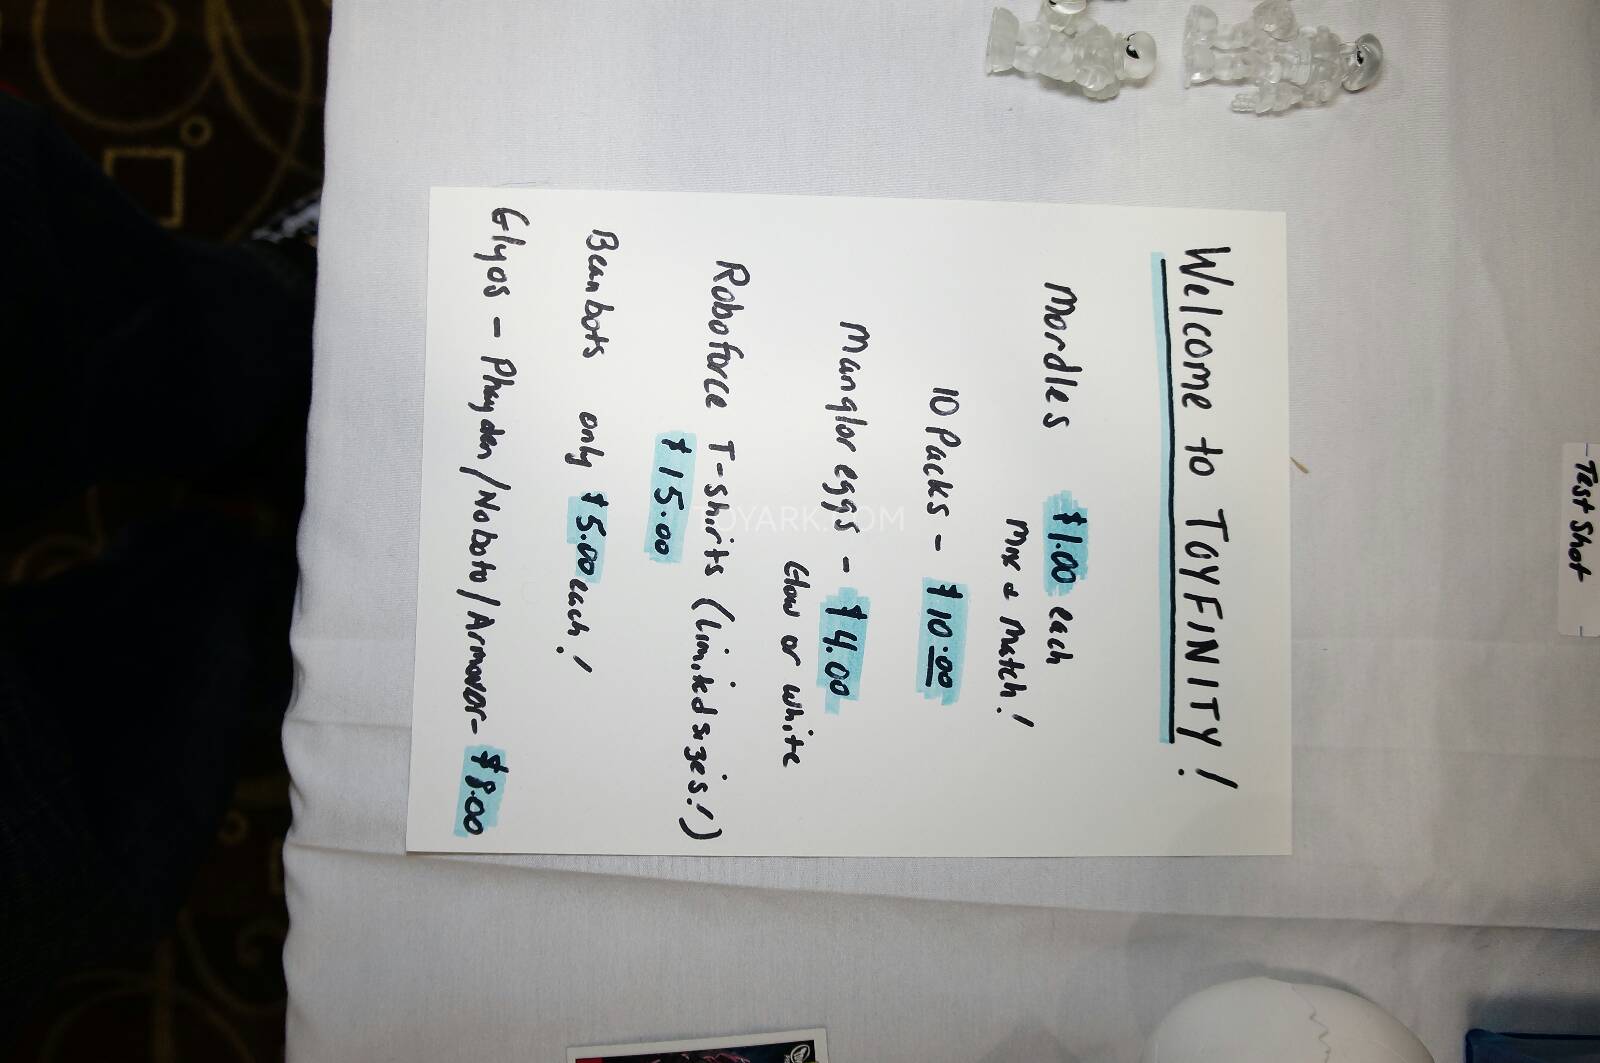 Welcome to TOYFINITY!
Mordles $1.00 each
Mix & Match!
10 Packs - $10.00
Manglor eggs - $4.00
Glow or white
Roboforce T-shirts (Limited sizes!)
$15.00
Beanbots only $5.00 each!
Glyos - Phayden/Noboto/Armovor- $8.00
Test Shot
TOYARK.COM